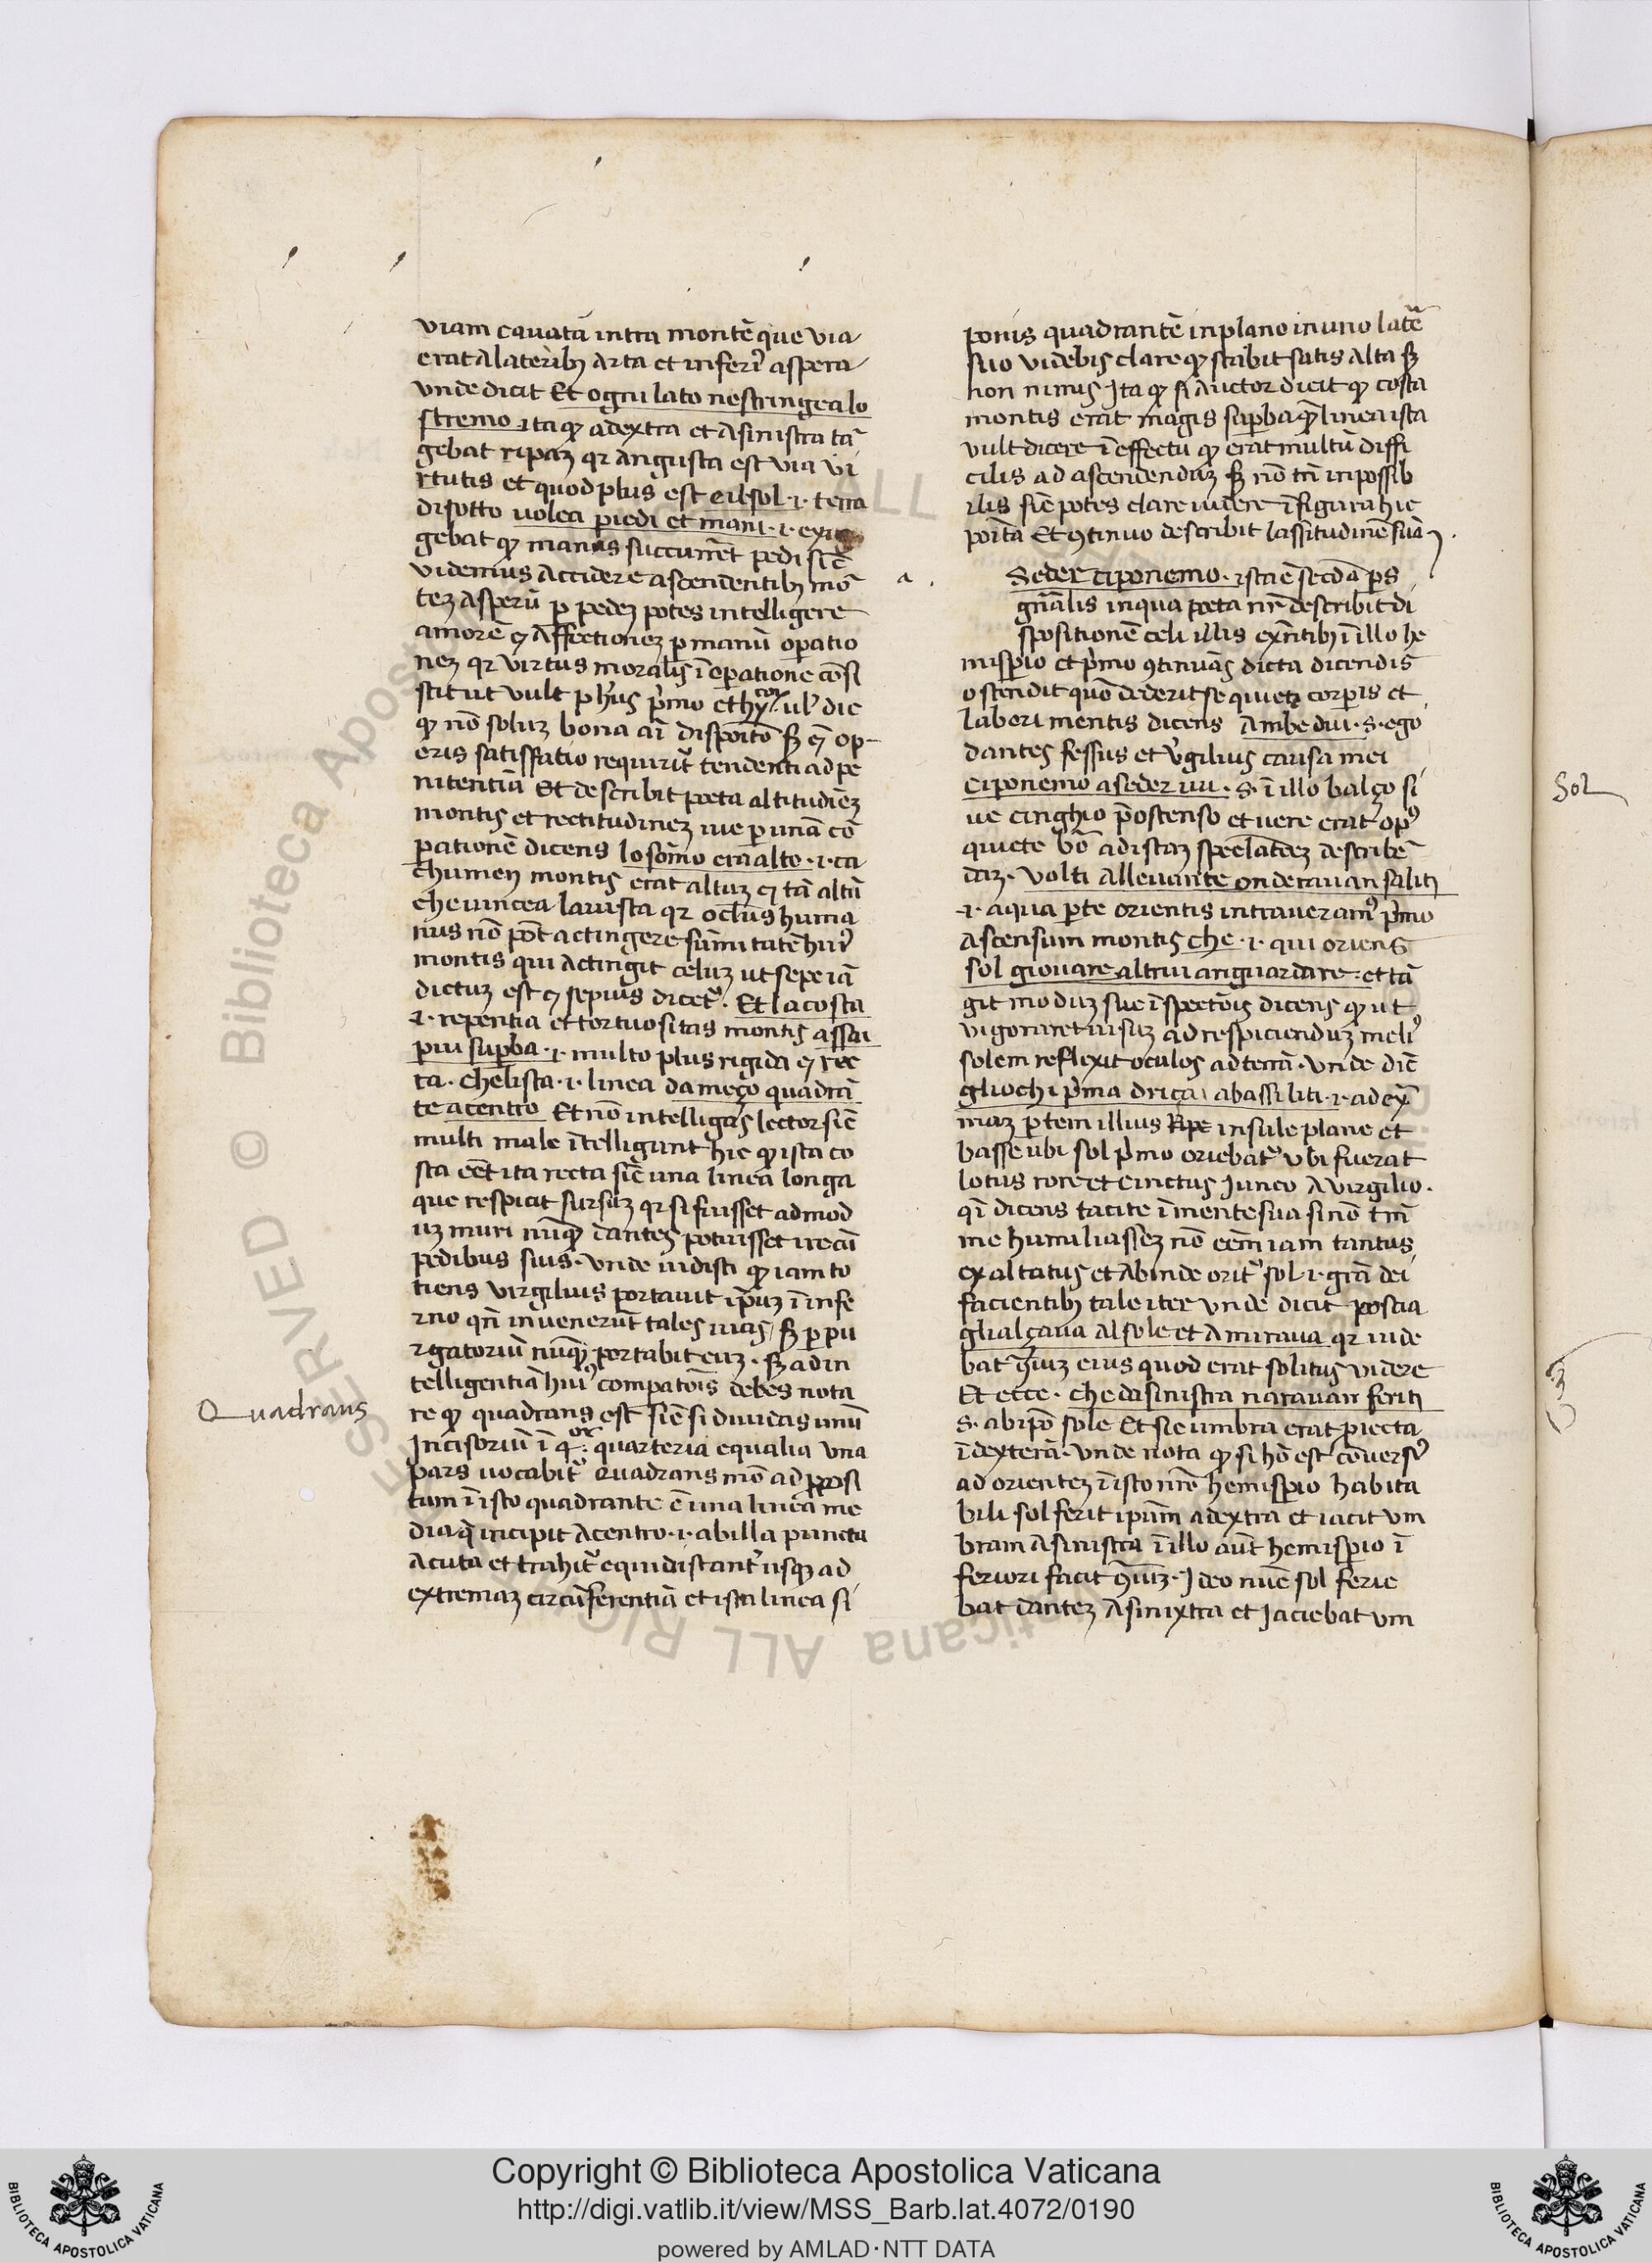 viam cavatā intra montē que via
erat a lateribꝫ arta et inferi᾽ aspera
vnde dicit Et ogni lato ne stringea lo
stremo ita qꝫ adextra et asinistra tā
gebat ripaꝫ qꝛ angusta est via vi
rtutis et quod plus est eilsol .i. terra
disotto volea piedi et mani .i. exi
gebat qꝫ manus succurrēt pedi sic̄
videmus accidere ascendentibꝫ mō
teꝫ asperū ꝑ pedeꝫ potes intelligere
amorē ⁊ affectioneꝫ ꝑ manū operatio
neꝫ qꝛ virtus moralis ī operatione cōsi
stit ut vult ph᾽us p᾽mo ethycoꝝ ubi᾽ dic
qꝫ nō soluꝫ bona aī dispōitō sꝫ ⁊ op
eris satisfatio requirit᾽ tendenti ad pe
nitentiā Et describit poeta altitudīeꝫ
montis et rectitudineꝫ vie ꝑ unā cō
ꝑationē dicens lo sōmo era alto .i. ca
chumeꝫ montis erat altuꝫ ⁊ tā altū
che vincea la vista qꝛ oculus huma
nus nō pōt actingere sūmitatē hui᾽
montis qui actingit celuꝫ ut sepe iā
dictuꝫ est ⁊ sepius dicet᾽. Et la costa
.i. repentia et tortuositas montis assai
piu suꝑba .i. multo plus rigida ⁊ rec
ta. che lista .i. linea da meço quadrā
te acentro Et nō intelligas lector sic̄
multi male ītelligunt hic qꝫ ista co
sta eēt ita recta sic̄ una linea longa
que respicit sursuꝫ qꝛ si fuisset ad mod
uꝫ muri nūqꝫ dantes potuisset ire cū
pedibus suis. vnde vidisti qꝫ iam to
tiens virgilius portavit ip̄uꝫ ī infe
rno qn̄ invenerūt tales vias sꝫ ꝑ pu
rgatoriū nūqꝫ portabit euꝫ. sꝫ ad in
telligentiā hui᾽ compatōis debes nota
re qꝫ quadrans est sic̄ si dividas unū
Incisoriū ī 4or quarteria equalia una
pars vocabit᾽ quadrans mō ad proposi
tum ī isto quadrante ē una linea me
dia q̄ incipit acentro .i. ab illa puncta
acuta et trahit᾽ equidistant᾽ usqꝫ ad
extremaꝫ circūferentiā et ista linea si
Quadrans
ponis quadrantē in plano in uno latē
suo videbis clare qꝫ stabit satis alta sꝫ
non nimis Ita qꝫ si auctor dicit qꝫ costa
montis erat magis suꝑba qꝫ linea ista
vult dicere ī effectu qꝫ erat multū diffi
cilis ad ascendenduꝫ sꝫ nō tn̄ inpossib
ilis sic̄ potes clare videre ī figura hic
poīta Et ꝯtinuo describit lassitudinē suā
a .
Seder ciponemo. ista ē secd̄a ꝑs
gn̄alis in qua poeta nr̄ describit di
spositionē celi illis exn̄tibꝫ ī illo he
misꝑio et p᾽mo ꝯtinuās dicta dicendis
ostendit quō dederit se quietꝫ corꝑis et
labori mentis dicens ambe dui .s. ego
dantes fessus et v᾽gilius causa mei
ciponemo aseder ivi .s. ī illo balço si
ve cinghio p̄ostenso et vere erat op᾽
quiete bō ad istaꝫ speculandeꝫ describē
daꝫ. volti allevante onderavan saliti
.i. aqua ꝑte orientis intraveram᾽ p᾽mo
ascensum montis che .i. qui oriens
sol giovare altrui a riguardare. et tā
git moduꝫ sue īspectōis dicens qꝫ ut
vigoraret visuꝫ ad respiciendūꝫ meli᾽
solem reflexit oculos ad terrā. vnde dic̄
gliochi p᾽ma driça abassi liti .i. ad ex᾽
maꝫ ꝑtem illius Rpe insule plane et
basse ubi sol p᾽mo oriebat᾽ ubi fuerat
lotus rore et cinctus Iunco a virgilio.
qī dicens tacite ī mente sua si nō tm̄
me humiliasseꝫ nō eēm iam tantus
exaltatus et abinde orit᾽ sol .i. grā dei
facientibꝫ tale iter vnde dicit poscia
glialçava al sole et amirava qꝛ vide
bat ꝯ᾽iuꝫ eius quod erat solitus videre
Et ecce. che dasinistra naravan feriti
.s. ab ip̄o sole Et sic umbra erat ꝓiecta
ī dexterā. vnde nota qꝫ si hō est cōversᷤ
ad orienteꝫ ī isto nrō hemisꝑio habita
bili sol ferit ip̄um adextra et iacit um
bram asinistra ī illo aūt hemisꝑio ī
feriori facit ꝯ᾽iuꝫ. Ideo nūc sol ferie
bat danteꝫ asinixtra et Iaciebat um
Sol
Copyright © Biblioteca Apostolica Vaticana
http://digi.vatlib.it/view/MSS_Barb.lat.4072/0190
powered by AMLAD·NTT DATA
BIBLIOTECA APOSTOLICA VATICANA
BIBLIOTECA APOSTOLICA VATICANA